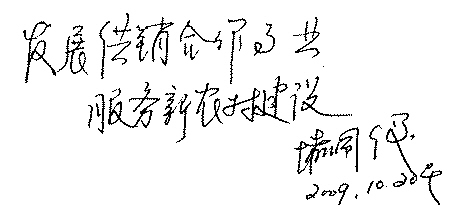 发展供销合作事业
服务新农村建设
2009.10.20